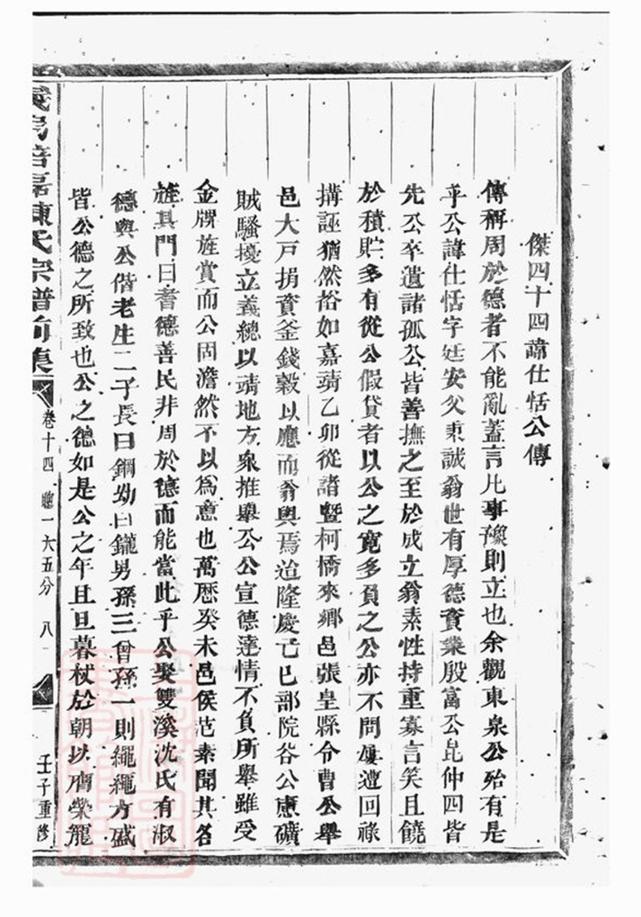 傑四十四諱仕恬公傳
傳稱周於德者不能亂蓋言凡事豫則立也余觀東泉公殆有是
乎公諱仕恬字廷安父秉誠翁世有厚德資業殷富公昆仲四皆
先公卒遺諸孤公皆善撫之至於成立翁素性持重寡言笑且饒
於積貯多有從公假貸者以公之寬多負之公亦不問屢遭回祿
搆誣猶然裕如嘉靖乙卯從諸暨柯橋來鄉邑張皇縣令曹公舉
邑大戶捐資釜錢穀以應而翁與焉迨隆慶己巳部院谷公憲礦
賊騷擾立義總以靖地方衆推舉公公宣德達情不負所舉雖受
金牌旌賞而公固澹然不以為意也萬歷癸未邑侯范素聞其名
旌其門曰耆德善民非周於德而能當此乎公娶雙溪沈氏有淑
德與公偕老生二子長曰鋼幼曰鑨男孫三曾孫一則繩繩方盛
皆公德之所致也公之德如是公之年且旦暮杖於朝以膺榮寵
陳氏宗譜前集
卷十四
一六五分
八
壬子重修